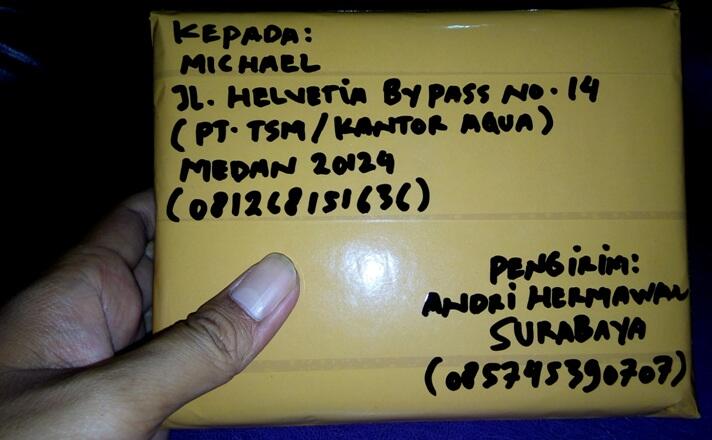 KEPADA:
MICHAEL
JL. HELVETIA BY PASS NO. 14
(PT. TSM / KANTOR AQUA)
MEDAN 20124
(081268151636)
PENGIRIM:
ANDRI HERMAWAN
SURABAYA
(085745390707)